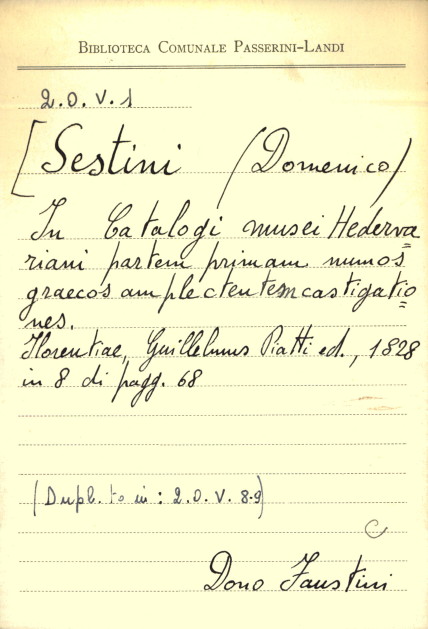 BIBLIOTECA COMUNALE PASSERINI-LANDI
2.O.V.1
[Sestini (Domenico)
In Catalogi musei Hederva=
riani partem primam numos
graecos amplectentem castigatio=
nes.
Florentiae, Guillelmus Piatti ed., 1828
in 8 di pagg. 68
(Dupl.to in: 2.O.V.8-9)
C
Dono Faustini